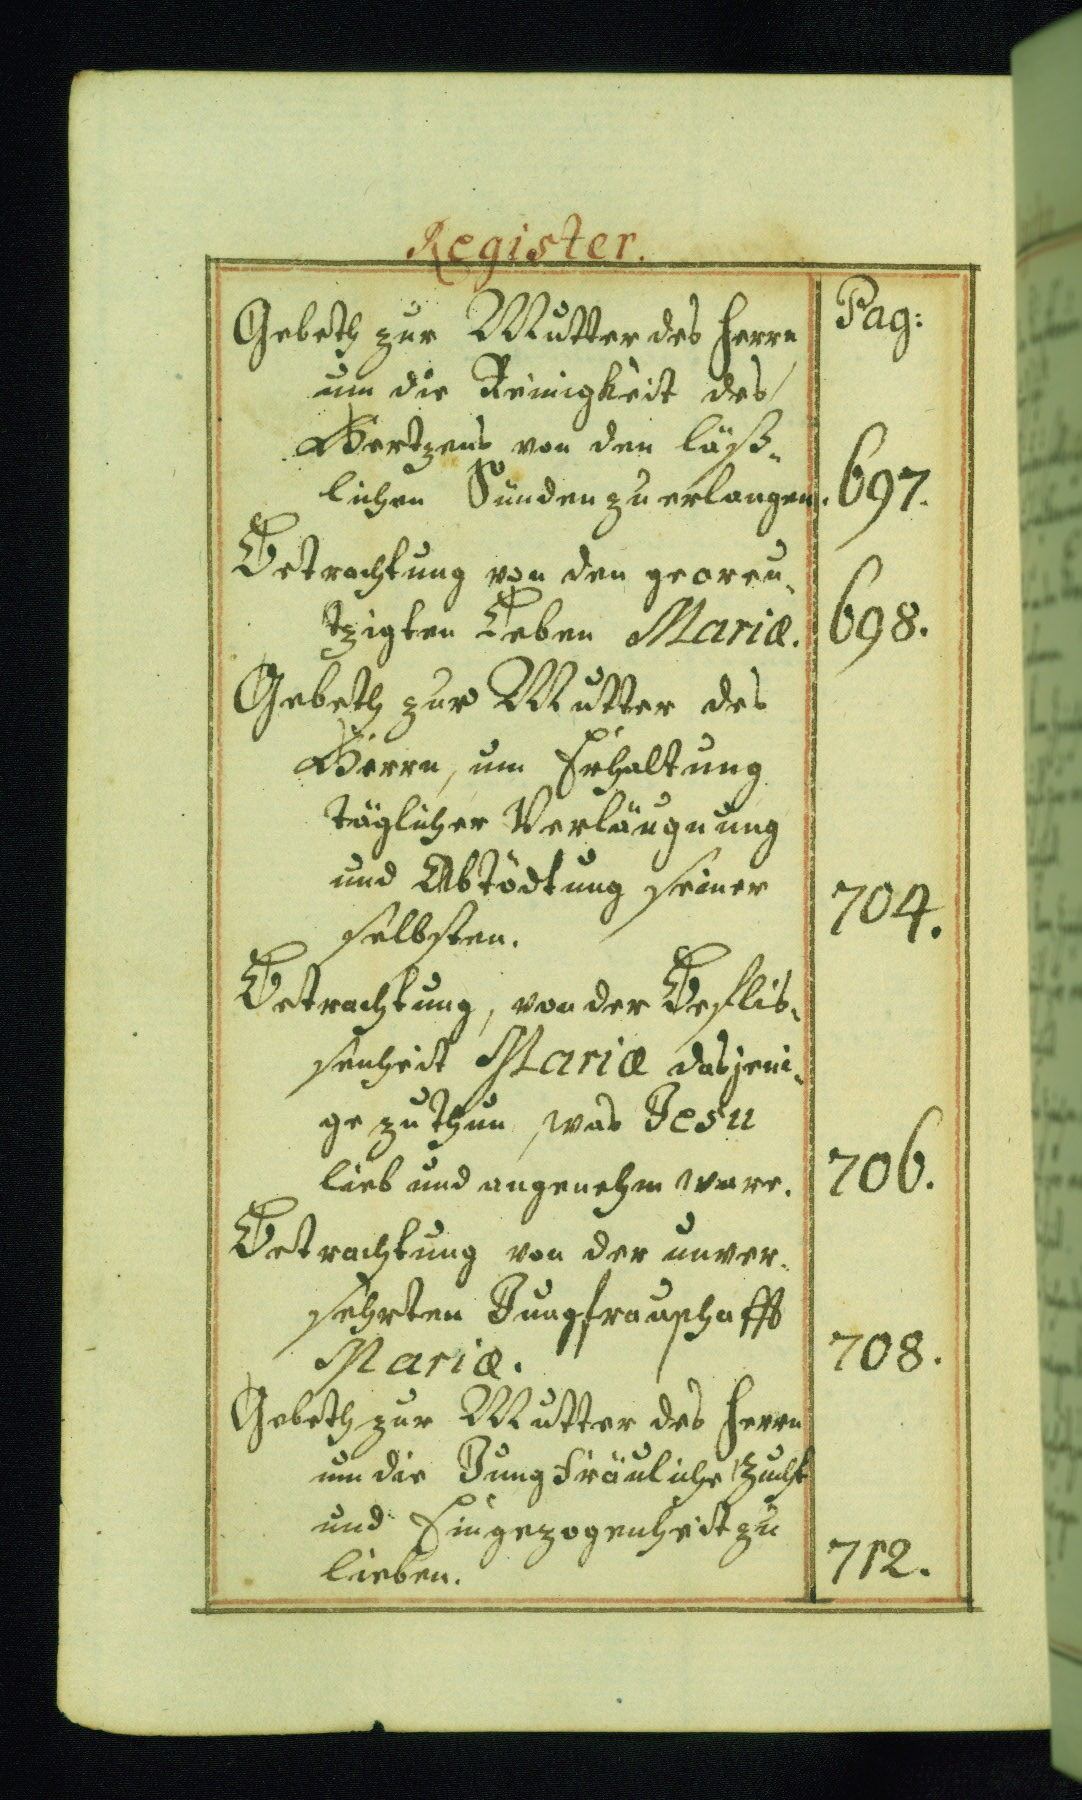 Register.
Pag:
Gebeth zur Mutter des Herrn
um die Reinigkeit des
Hertzens von den läß-
lichen Sünden zu erlangen. 697.
Betrachtung von den gecreu-
tzigten Leben Mariæ. 698.
Gebeth zur Mutter des
Herrn, um Erhaltung
täglicher Verläugnung
und Abtödtung seiner
selbsten. 704.
Betrachtung, von der Beflis-
senheit Mariæ dasjeni-
ge zu thun, was Jesu
lieb und angenehm ware. 706.
Betrachtung von der unver-
sehrten Jungfrauschafft
Mariæ. 708.
Gebeth zur Mutter des Herrn
um die Jungfräuliche Zucht
und Eingezogenheit zu
lieben. 712.